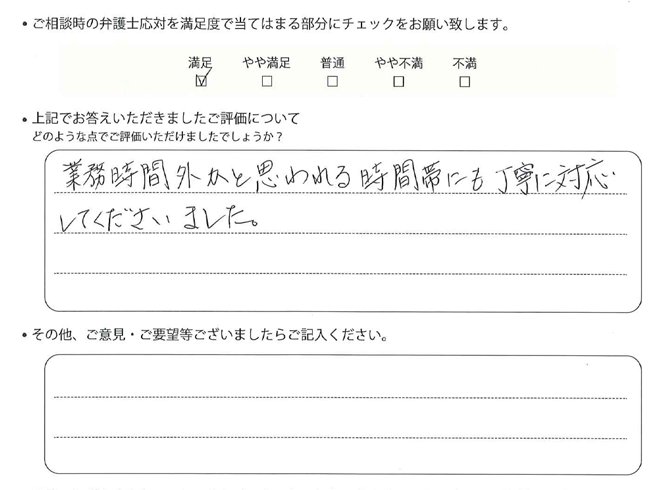 ・ご相談時の弁護士応対を満足度で当てはまる部分にチェックをお願い致します。
満足 やや満足 普通 やや不満 不満
☑ □ □ □ □
・上記でお答えいただきましたご評価について
どのような点でご評価いただけましたでしょうか？
業務時間外かと思われる時間帯にも丁寧に対応
してくださいました。
・その他、ご意見・ご要望等ございましたらご記入ください。